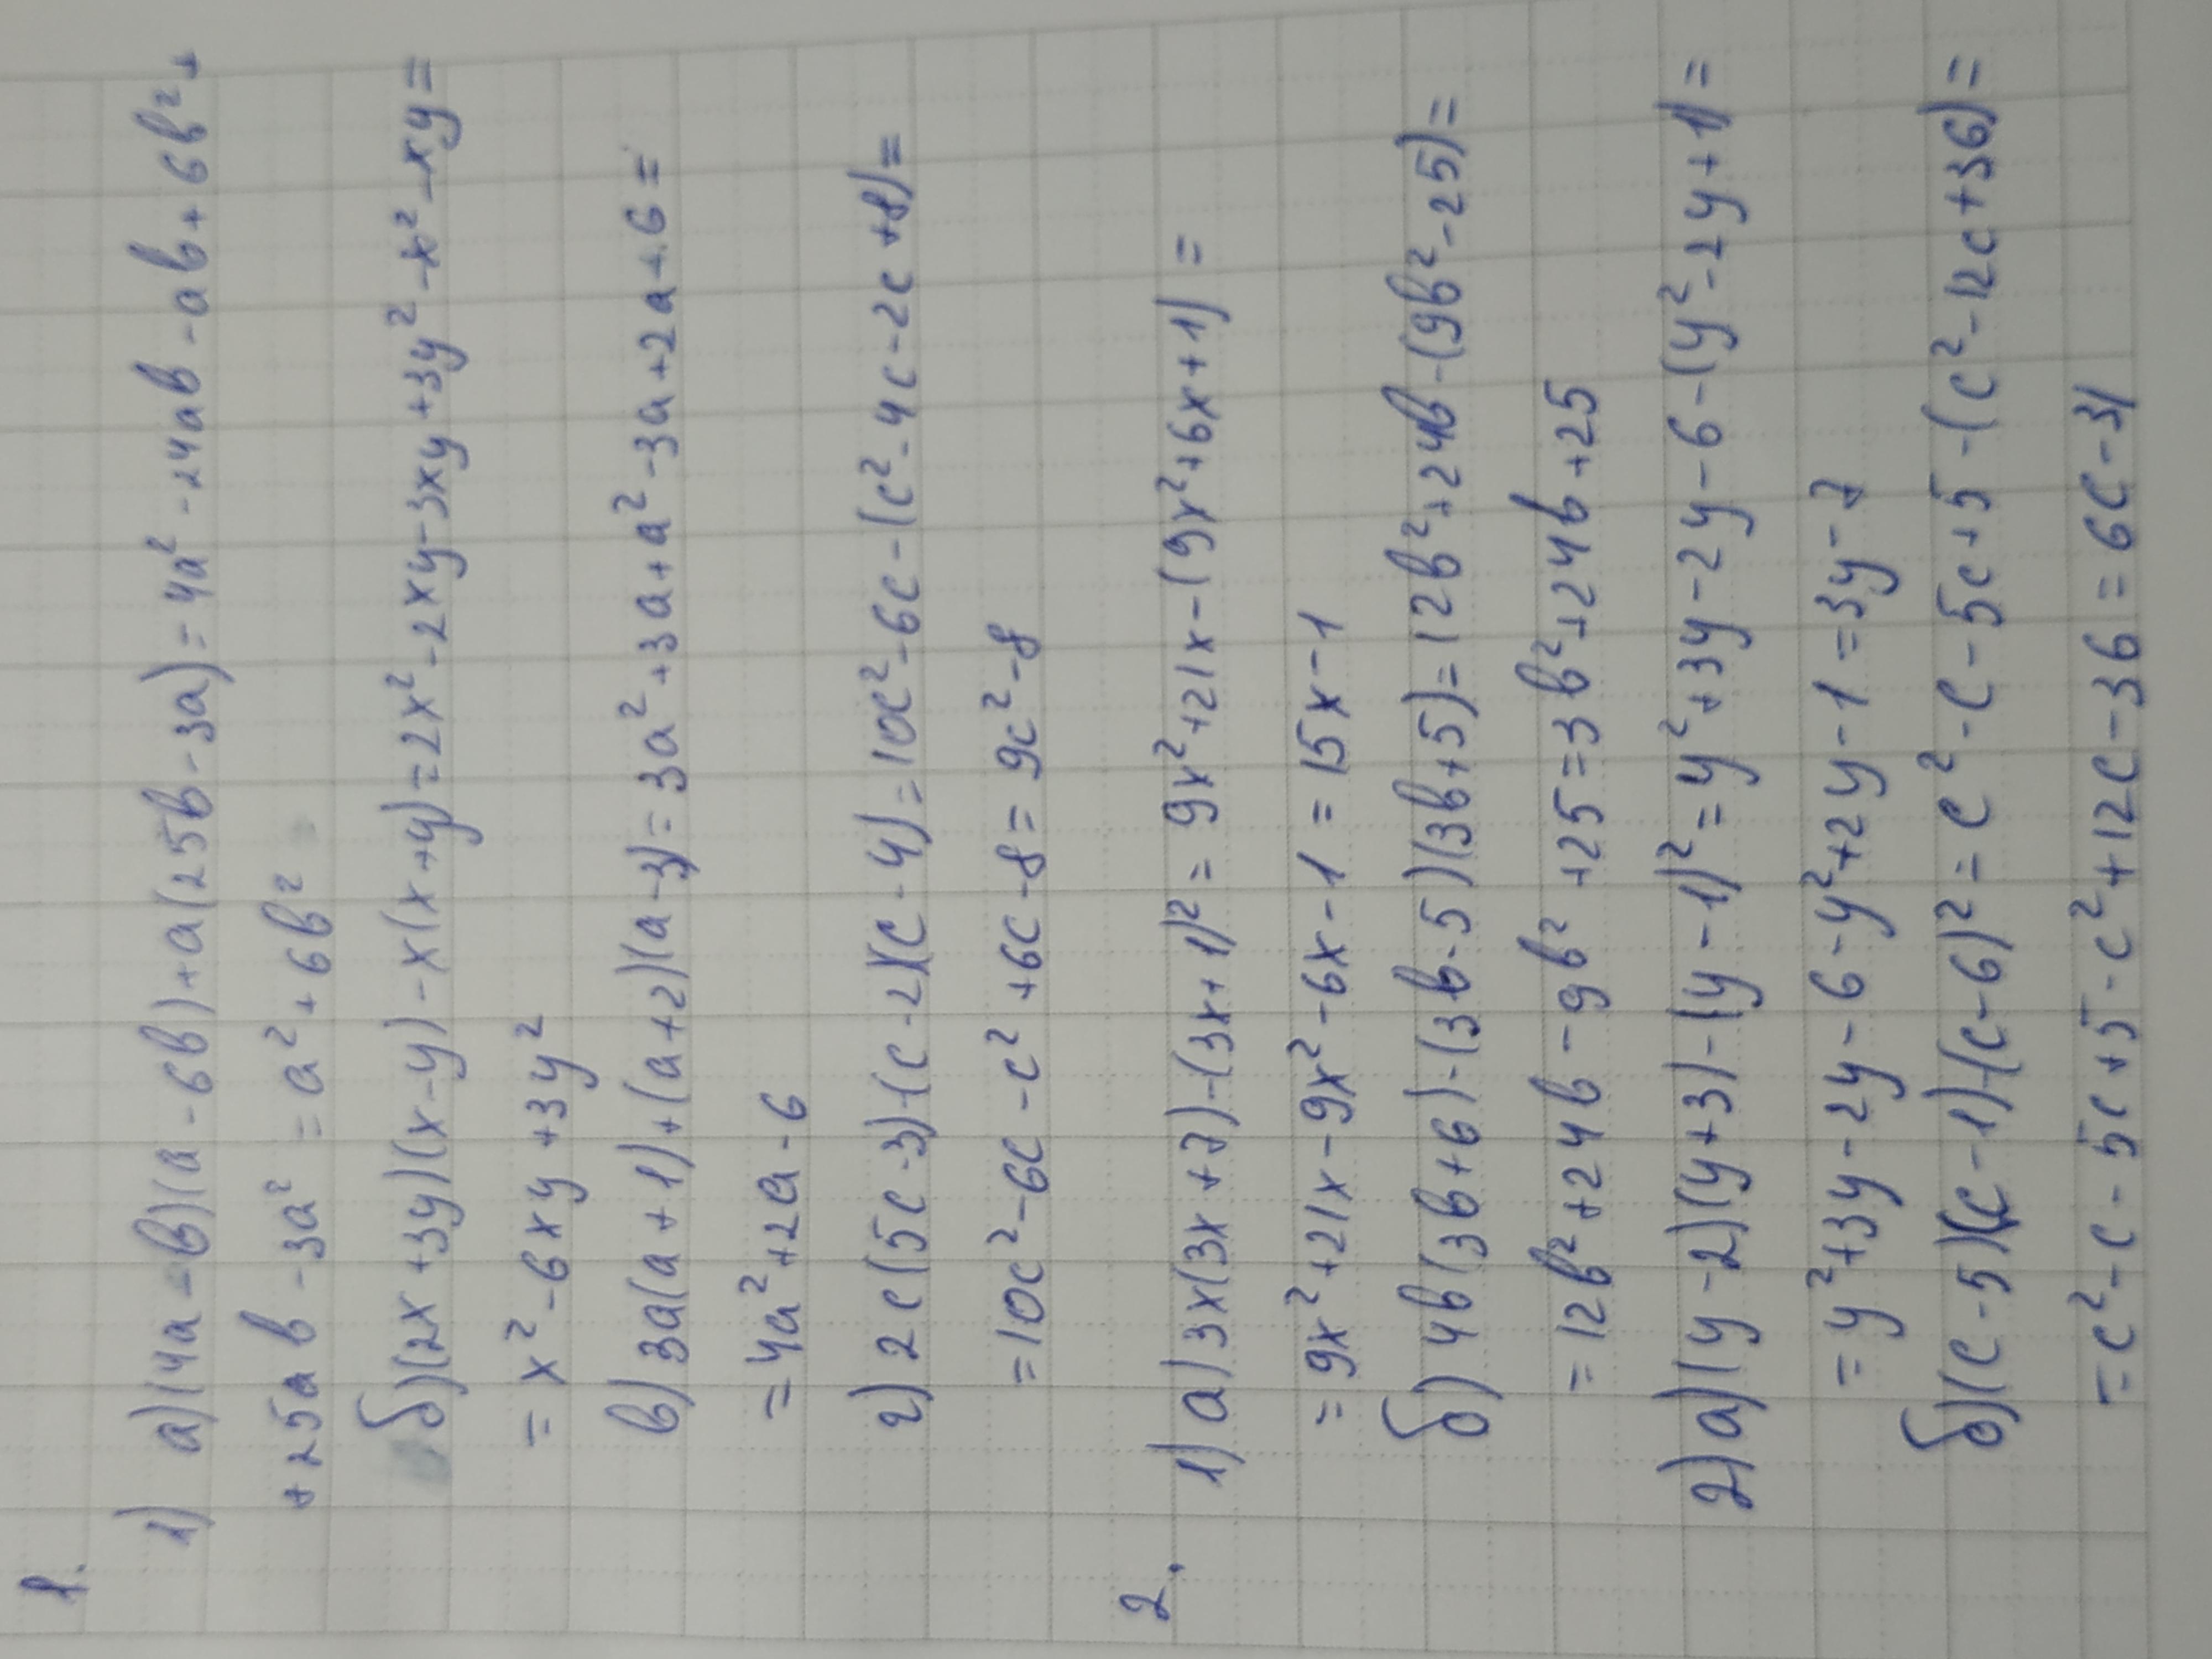 1.
1) а) (4a-b)(a-6b)+a(25b-3a)=4a²-24ab-ab+6b²+
+25ab-3a²=a²+6b²
б) (2x+3y)(x-y)-x(x+y)=2x²-2xy-3xy+3y²-x²-xy=
=x²-6xy+3y²
в) 3a(a+1)+(a+2)(a-3)=3a²+3a+a²-3a+2a+6=
=4a²+2a-6
г) 2c(5c-3)-(c-2)(c-4)=10c²-6c-(c²-4c-2c+8)=
=10c²-6c-c²+6c-8=9c²-8
2.
1) а) 3x(3x+7)-(3x+1)²=9x²+21x-(9x²+6x+1)=
=9x²+21x-9x²-6x-1=15x-1
б) 4b(3b+6)-(3b-5)(3b+5)=12b²+24b-(9b²-25)=
=12b²+24b-9b²+25=3b²+24b+25
2) а) (y-2)(y+3)-(y-1)²=y²+3y-2y-6-(y²-2y+1)=
=y²+3y-2y-6-y²+2y-1=3y-7
б) (c-5)(c-1)-(c-6)²=c²-c-5c+5-(c²-12c+36)=
=c²-c-5c+5-c²+12c-36=6c-31